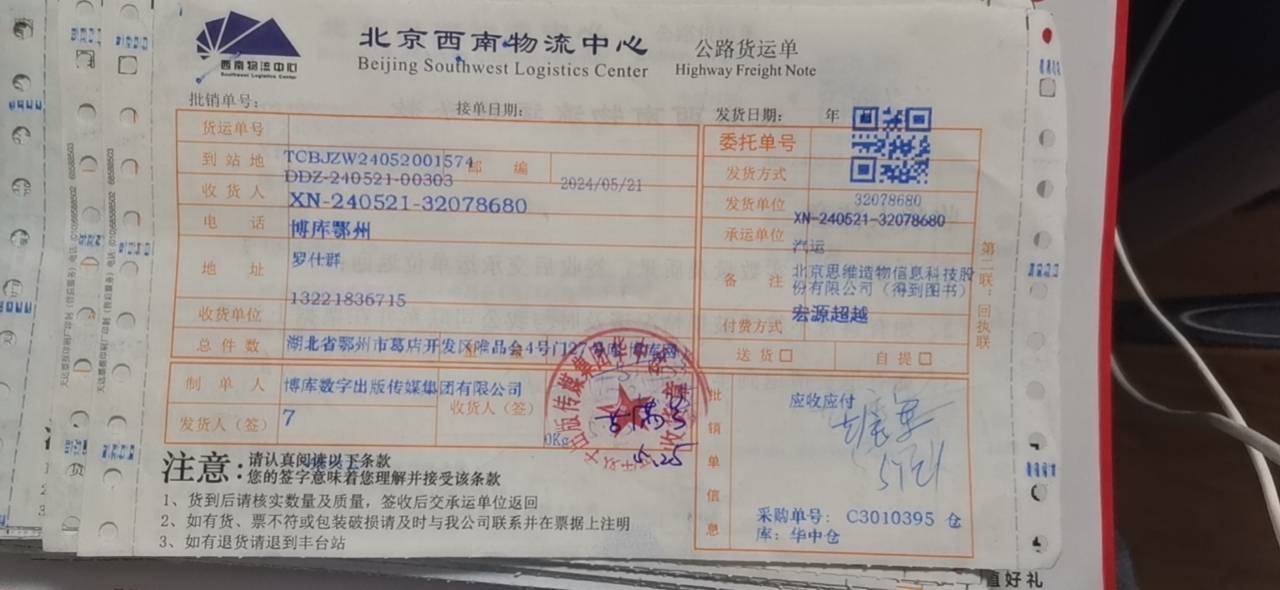 北京西南物流中心
公路货运单
西南物流中心
Southwest Logistics Center
Beijing Southwest Logistics Center
Highway Freight Note
批销单号:
接单日期:
发货日期: 年
货运单号
委托单号
到站地
TCBJZW24052001574
邮编
DDZ-240521-00303
2024/05/21
发货方式
收货人
XN-240521-32078680
发货单位
32078680
XN-240521-32078680
电话
博库鄂州
承运单位
汽运
地址
罗仕群
备注
北京思维造物信息科技股
份有限公司(得到图书)
13221836715
收货单位
付费方式
宏源超越
总件数
湖北省鄂州市葛店开发区唯品会4号门27
送货□
自提□
制单人
博库数字出版传媒集团有限公司
收货人(签)
发货人(签)
7
0Kg
5.25
批销单信息
应收应付
采购单号: C3010395 仓
库: 华中仓
第二联:回执联
注意:
请认真阅读以下条款
您的签字意味着您理解并接受该条款
1、货到后请核实数量及质量,签收后交承运单位返回
2、如有货、票不符或包装破损请及时与我公司联系并在票据上注明
3、如有退货请退到丰台站
值好礼